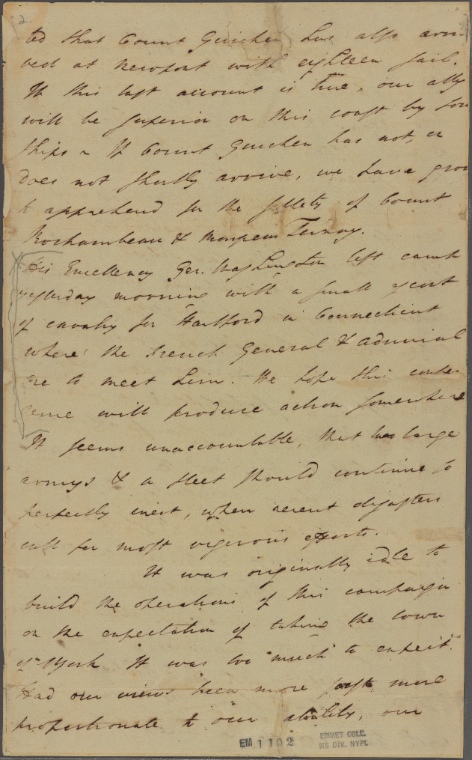 2
ted that Count Guichen has also arri
ved at Newport with eighteen sail.
If this last account is true, our ally
will be superior on this coast by four
ships – If Count Guichen has not, or
does not shortly arrive, we have grou
to apprehend for the safety of Count
Rochambeau & Monsieur Ternay.
His Excellency Gen. Washington left camp
yesterday morning with a small escort
of cavalry for Hartford in Connecticut
where the French General & Admiral
are to meet him. We hope this confer
ence will produce action somewhere
It seems unaccountable, that two large
armys & a fleet should continue so
perfectly inert, when recent disasters
call for most vigorous efforts.
It was originally idle to
build the operations of this campaign
on the expectation of taking the town
of York It was too much to expect.
Had our views been more just, more
proportionate to our ability, our
EM 1102
EMMET COLL.
MS DIV. NYPL